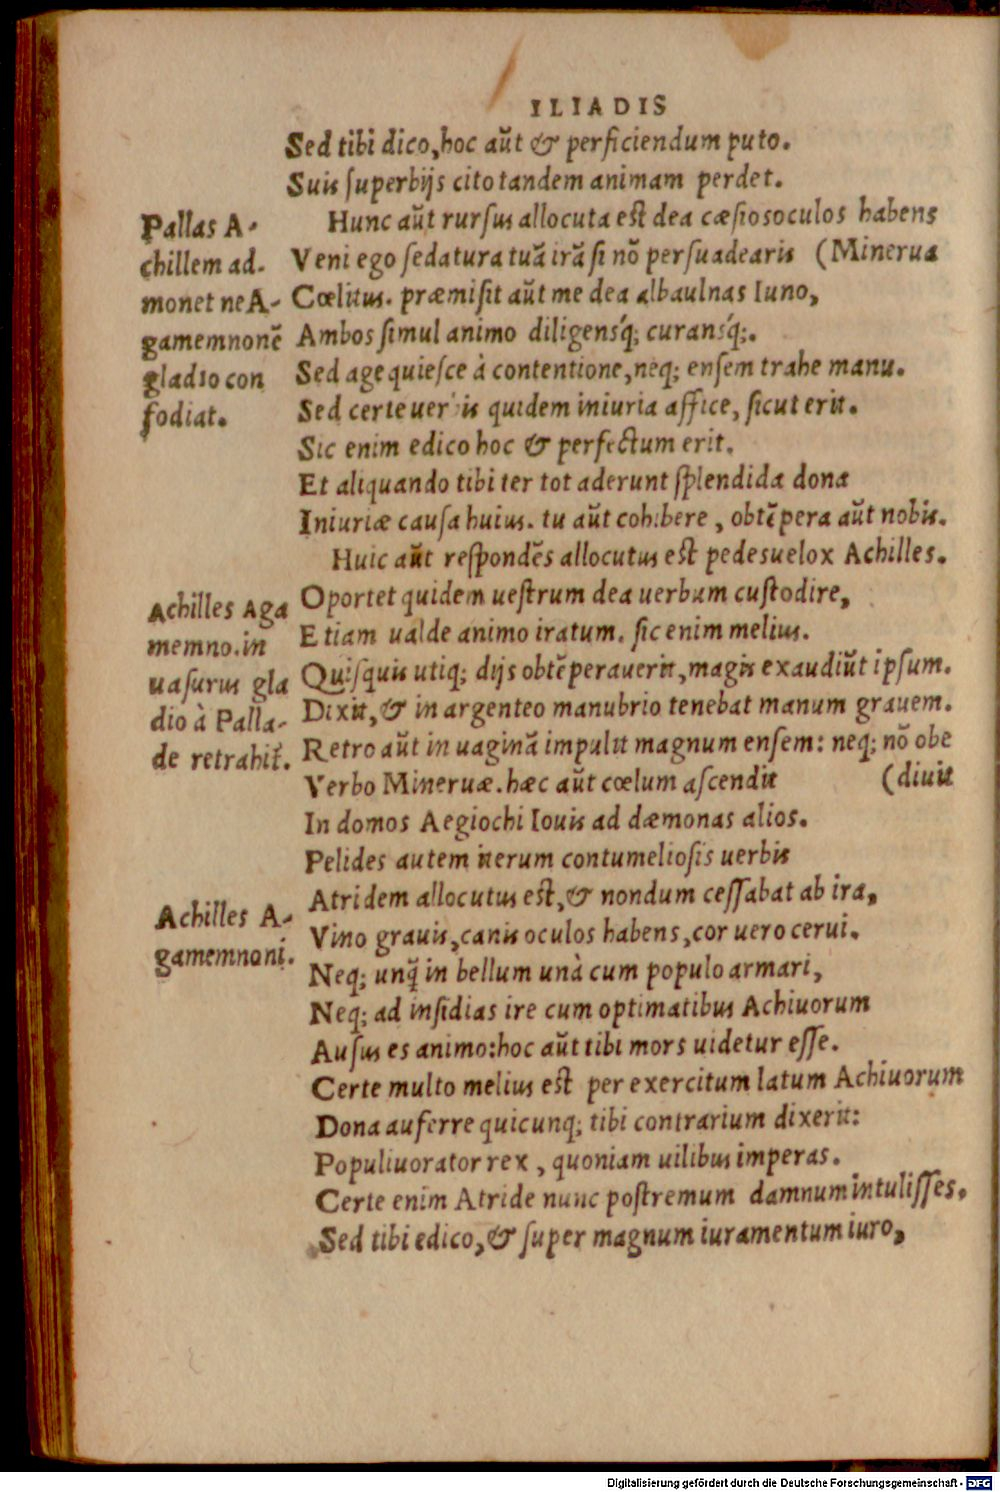 ILIADIS
Sed tibi dico, hoc aũt & perficiendum puto.
Suis ſuperbijs cito tandem animam perdet.
Hunc aũt rurſus allocuta eſt dea cæſios oculos habens
Veni ego ſedatura tuã irã ſi nõ perſuadearis (Minerua
Cœlitus. præmiſit aũt me dea alba ulnas Iuno,
Ambos ſimul animo diligensq́; curansq́;.
Sed age quieſce à contentione, neq; enſem trahe manu.
Sed certe uerbis quidem iniuria affice, ſicut erit.
Sic enim edico hoc & perfectum erit.
Et aliquando tibi ter tot aderunt ſplendida dona
Iniuriæ cauſa huius. tu aũt cohibere, obtẽpera aũt nobis.
Huic aũt reſpondẽs allocutus eſt pedes uelox Achilles.
Oportet quidem ueſtrum dea uerbum cuſtodire,
Etiam ualde animo iratum. ſic enim melius.
Quiſquis utiq; dijs obtẽperauerit, magis exaudiũt ipſum.
Dixit, & in argenteo manubrio tenebat manum grauem.
Retro aũt in uaginã impulit magnum enſem: neq; nõ obe
Verbo Mineruæ. hæc aũt cœlum aſcendit (diuit
In domos Aegiochi Iouis ad dæmonas alios.
Pelides autem iterum contumelioſis uerbis
Atridem allocutus eſt, & nondum ceſſabat ab ira,
Vino grauis, canis oculos habens, cor uero cerui.
Neq; unq̃ in bellum unà cum populo armari,
Neq; ad inſidias ire cum optimatibus Achiuorum
Auſus es animo: hoc aũt tibi mors uidetur eſſe.
Certe multo melius eſt per exercitum latum Achiuorum
Dona auferre quicunq; tibi contrarium dixerit:
Populiuorator rex, quoniam uilibus imperas.
Certe enim Atride nunc poſtremum damnum intuliſſes.
Sed tibi edico, & ſuper magnum iuramentum iuro,
Pallas A-
chillem ad-
monet ne A-
gamemnonẽ
gladio con
fodiat.
Achilles Aga
memno. in
uaſurus gla
dio à Palla-
de retrahit̃.
Achilles A-
gamemnoni.
Digitalisierung gefördert durch die Deutsche Forschungsgemeinschaft - DFG